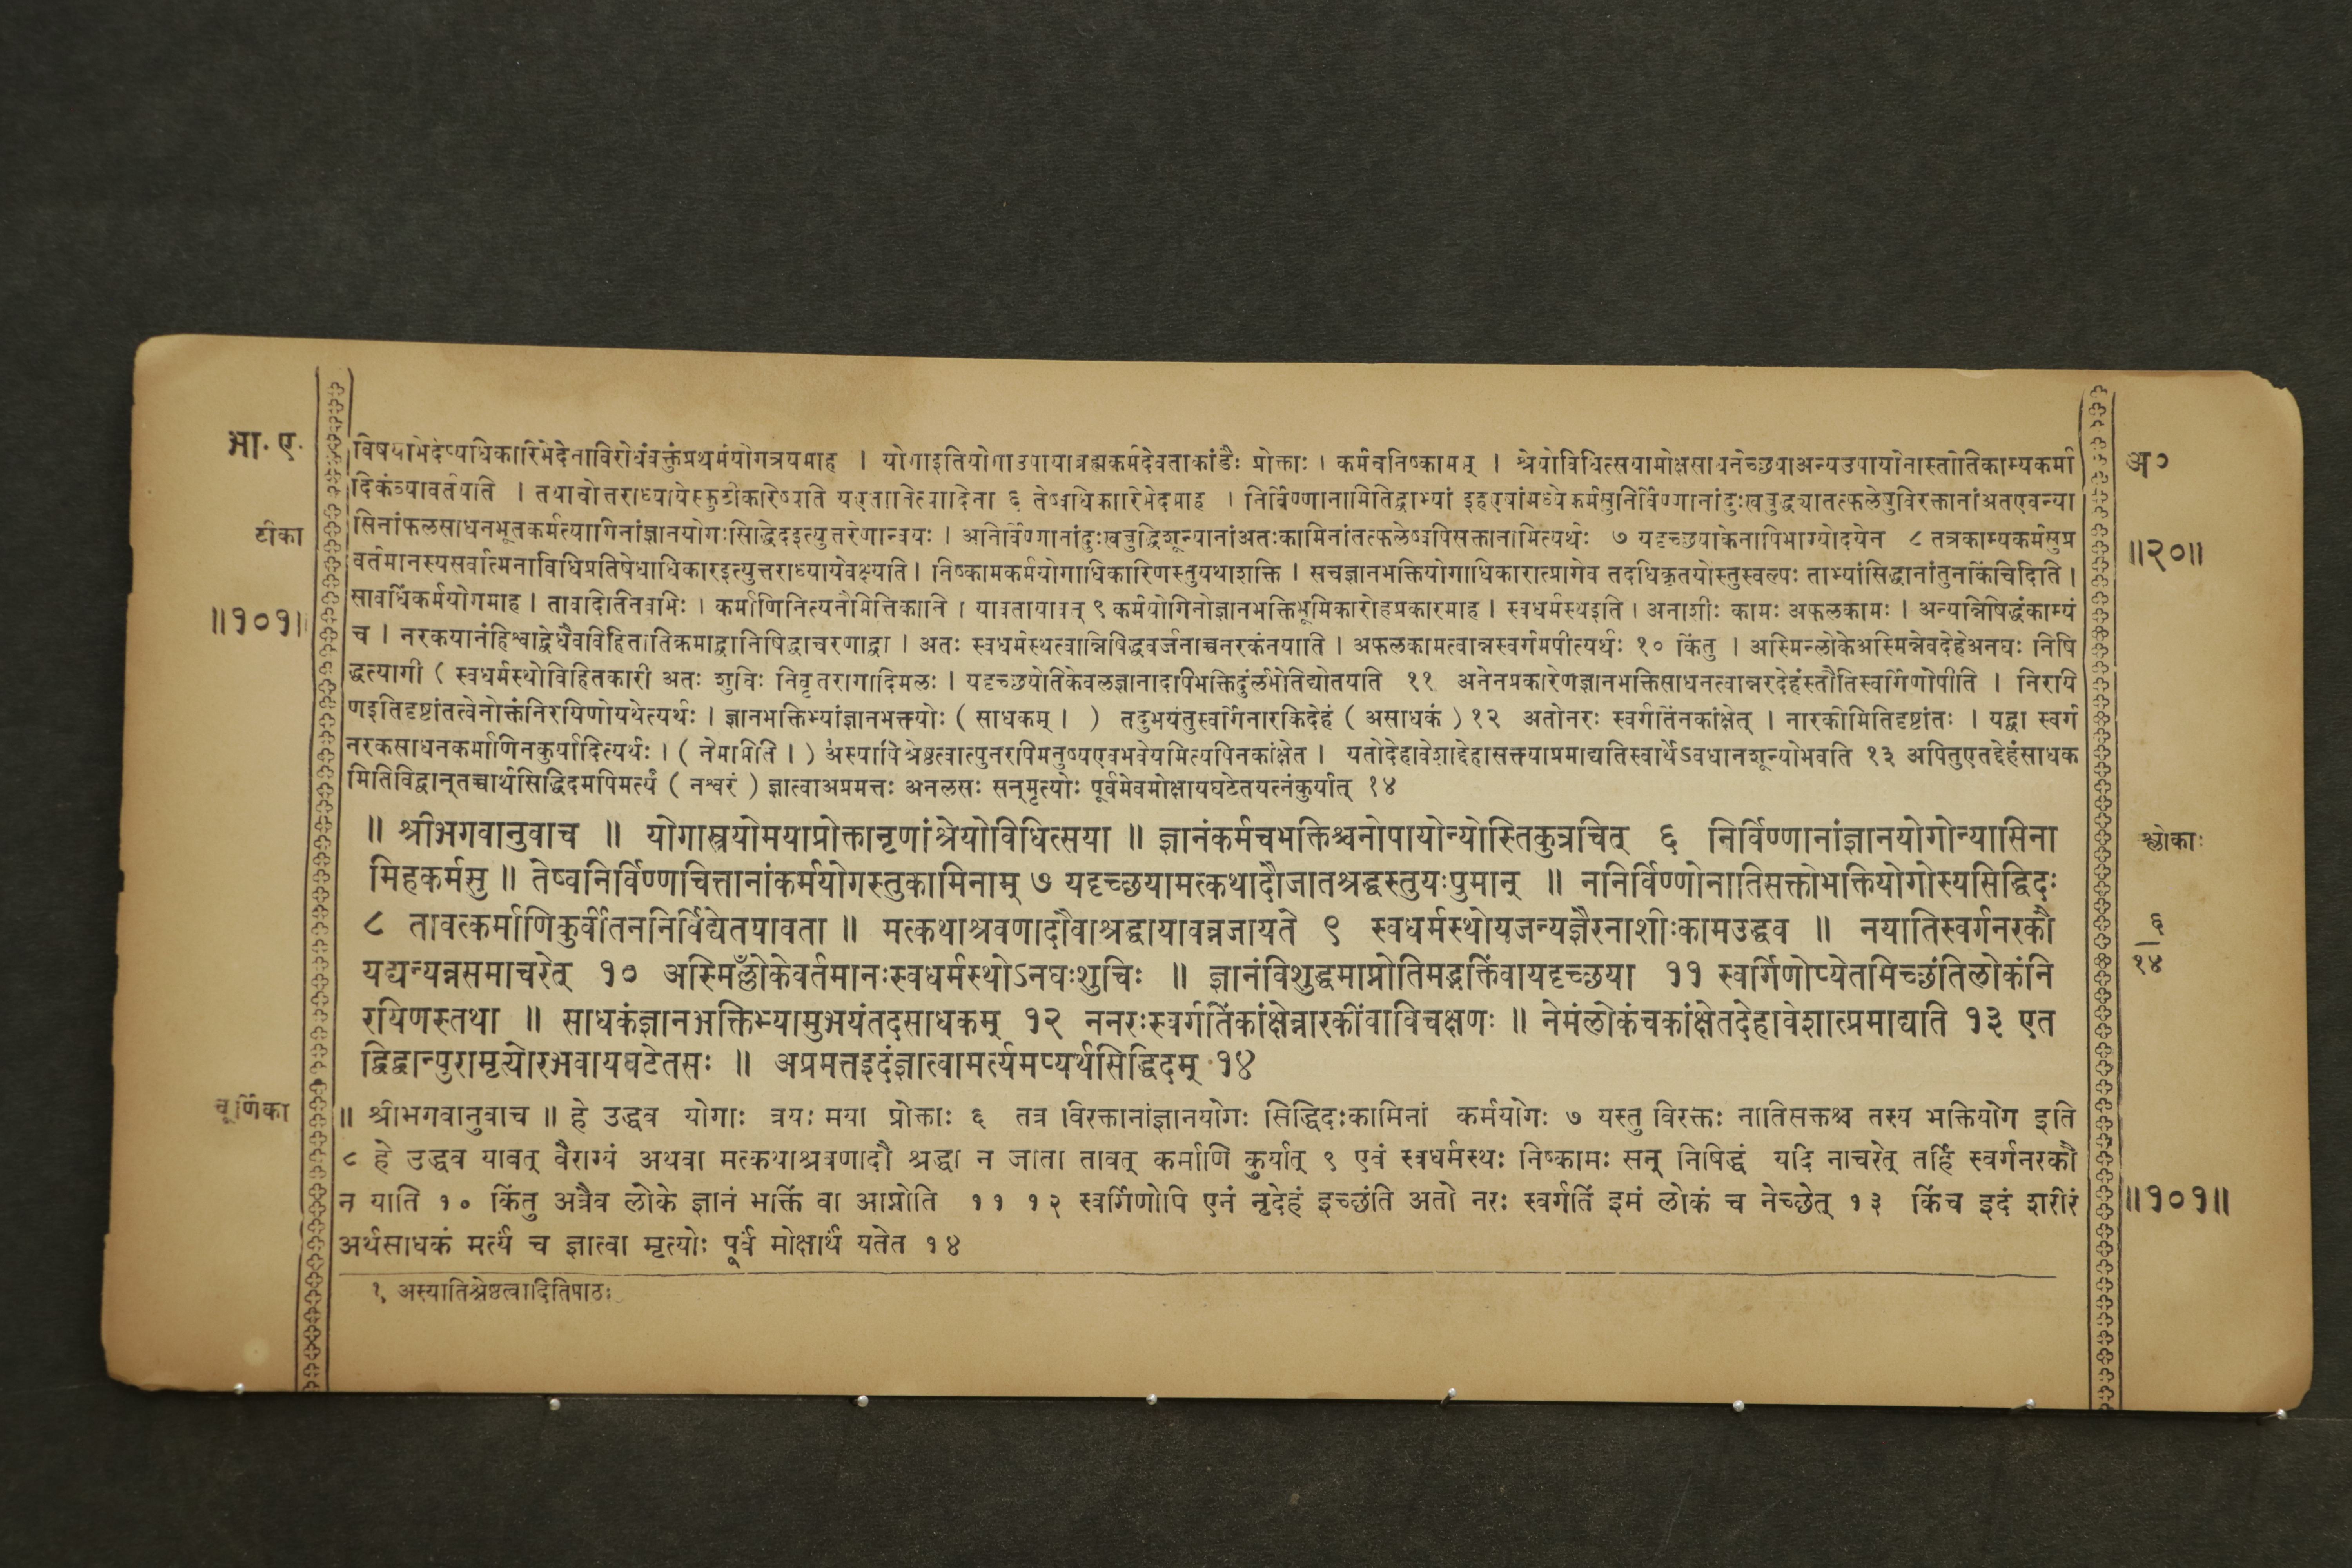 भा. ए.
अ०
टीका
॥२०॥
॥१०१॥
विषयाभेदेप्यधिकारिभेदेनाविरोधंवक्तुंप्रथमंयोगत्रयमाह । योगाइतियोगाउपायाब्रह्मकर्मदेवताकांडैः प्रोक्ताः । कर्मचनिष्कामम् । श्रेयोविधित्सयामोक्षसाधनेच्छयाअन्यउपायोनास्तीतिकाम्यकर्मा
दिकंव्यावर्तयति । तथाचोत्तराध्यायेस्फुटीकरिष्यति यएतानित्यादिना ६ तेष्वधिकारिभेदमाह । निर्विण्णानामितिद्वाभ्यां इहएषांमध्येकर्मसुनिर्विण्णानांदुःखबुद्ध्यातत्फलेषुविरक्तानांअतएवन्या
सिनांफलसाधनभूतकर्मत्यागिनांज्ञानयोगःसिद्धिदइत्युत्तरेणान्वयः । अनिर्विण्णानांदुःखबुद्धिशून्यानांअतःकामिनांतत्फलेष्वपिसक्तानामित्यर्थः ७ यदृच्छयाकेनापिभाग्योदयेन ८ तत्रकाम्यकर्मसुप्र
वर्तमानस्यसर्वात्मनाविधिप्रतिषेधाधिकारइत्युत्तराध्यायेवक्ष्यति । निष्कामकर्मयोगाधिकारिणस्तुयथाशक्ति । सचज्ञानभक्तियोगाधिकारात्प्रागेव तदधिकृतयोस्तुस्वल्पः ताभ्यांसिद्धानांतुनकिंचिदिति ।
सावधिंकर्मयोगमाह । तावदितिनवभिः । कर्माणिनित्यनैमित्तिकानि । यावतायावत् ९ कर्मयोगिनोज्ञानभक्तिभूमिकारोहप्रकारमाह । स्वधर्मस्थइति । अनाशीः कामः अफलकामः । अन्यन्निषिद्धंकाम्यं
च । नरकयानंहिश्वाद्वेधैवविहितातिक्रमाद्वानिषिद्धाचरणाद्वा । अतः स्वधर्मस्थत्वान्निषिद्धवर्जनाच्चनरकंनयाति । अफलकामत्वान्नस्वर्गमपीत्यर्थः १० किंतु । अस्मिन्लोकेअस्मिन्नेवदेहेअनघः निषि
द्धत्यागी ( स्वधर्मस्थोविहितकारी अतः शुचिः निवृत्तरागादिमलः । यदृच्छयेतिकेवलज्ञानादपिभक्तिर्दुर्लभेतिद्योतयति ११ अनेनप्रकारेणज्ञानभक्तिसाधनत्वान्नरदेहंस्तौतिस्वर्गिणोपीति । निरयि
णइतिदृष्टांतत्वेनोक्तंनिरयिणोयथेत्यर्थः । ज्ञानभक्तिभ्यांज्ञानभक्त्योः ( साधकम् । ) तदुभयंतुस्वर्गिनारकिदेहं ( असाधकं ) १२ अतोनरः स्वर्गतिंनकांक्षेत् । नारकीमितिदृष्टांतः । यद्वा स्वर्ग
नरकसाधनकर्माणिनकुर्यादित्यर्थः । ( नेमामिति । ) अस्यापि श्रेष्ठत्वात्पुनरपिमनुष्यएवभवेयमित्यपिनकांक्षेत । यतोदेहावेशाद्देहासक्त्याप्रमाद्यतिस्वार्थेऽवधानशून्योभवति १३ अपितुएतद्देहंसाधक
मितिविद्वान्तच्चार्थसिद्धिदमपिमर्त्यं ( नश्वरं ) ज्ञात्वाअप्रमत्तः अनलसः सन्मृत्योः पूर्वमेवमोक्षायघटेतयत्नंकुर्यात् १४
॥ श्रीभगवानुवाच ॥ योगास्त्रयोमयाप्रोक्तानृणांश्रेयोविधित्सया ॥ ज्ञानंकर्मचभक्तिश्चनोपायोन्योस्तिकुत्रचित् ६ निर्विण्णानांज्ञानयोगोन्यासिना
श्लोकाः
मिहकर्मसु ॥ तेष्वनिर्विण्णचित्तानांकर्मयोगस्तुकामिनाम् ७ यदृच्छयामत्कथादौजातश्रद्धस्तुयःपुमान् ॥ ननिर्विण्णोनातिसक्तोभक्तियोगोस्यसिद्धिदः
८ तावत्कर्माणिकुर्वीतननिर्विद्येतयावता ॥ मत्कथाश्रवणादौवाश्रद्धायावन्नजायते ९ स्वधर्मस्थोयजन्यज्ञैरनाशीःकामउद्धव ॥ नयातिस्वर्गनरकौ
६
१४
यद्यन्यन्नसमाचरेत् १० अस्मिल्ँलोकेवर्तमानःस्वधर्मस्थोऽनघःशुचिः ॥ ज्ञानंविशुद्धमाप्नोतिमद्भक्तिंवायदृच्छया ११ स्वर्गिणोप्येतमिच्छंतिलोकंनि
रयिणस्तथा ॥ साधकंज्ञानभक्तिभ्यामुभयंतदसाधकम् १२ ननरःस्वर्गतिंकांक्षेन्नारकींवाविचक्षणः ॥ नेमंलोकंचकांक्षेतदेहावेशात्प्रमाद्यति १३ एत
द्विद्वान्पुरामृत्योरभवायघटेतसः ॥ अप्रमत्तइदंज्ञात्वामर्त्यमप्यर्थसिद्धिदम् १४
चूर्णिका
॥ श्रीभगवानुवाच ॥ हे उद्धव योगाः त्रयः मया प्रोक्ताः ६ तत्र विरक्तानांज्ञानयोगः सिद्धिदःकामिनां कर्मयोगः ७ यस्तु विरक्तः नातिसक्तश्च तस्य भक्तियोग इति
८ हे उद्धव यावत् वैराग्यं अथवा मत्कथाश्रवणादौ श्रद्धा न जाता तावत् कर्माणि कुर्यात् ९ एवं स्वधर्मस्थः निष्कामः सन् निषिद्धं यदि नाचरेत् तर्हि स्वर्गनरकौ
न याति १० किंतु अत्रैव लोके ज्ञानं भक्तिं वा आप्नोति ११ १२ स्वर्गिणोपि एनं नृदेहं इच्छंति अतो नरः स्वर्गतिं इमं लोकं च नेच्छेत् १३ किंच इदं शरीरं
॥१०१॥
अर्थसाधकं मर्त्यं च ज्ञात्वा मृत्योः पूर्वं मोक्षार्थं यतेत १४
१ अस्यातिश्रेष्ठत्वादितिपाठः